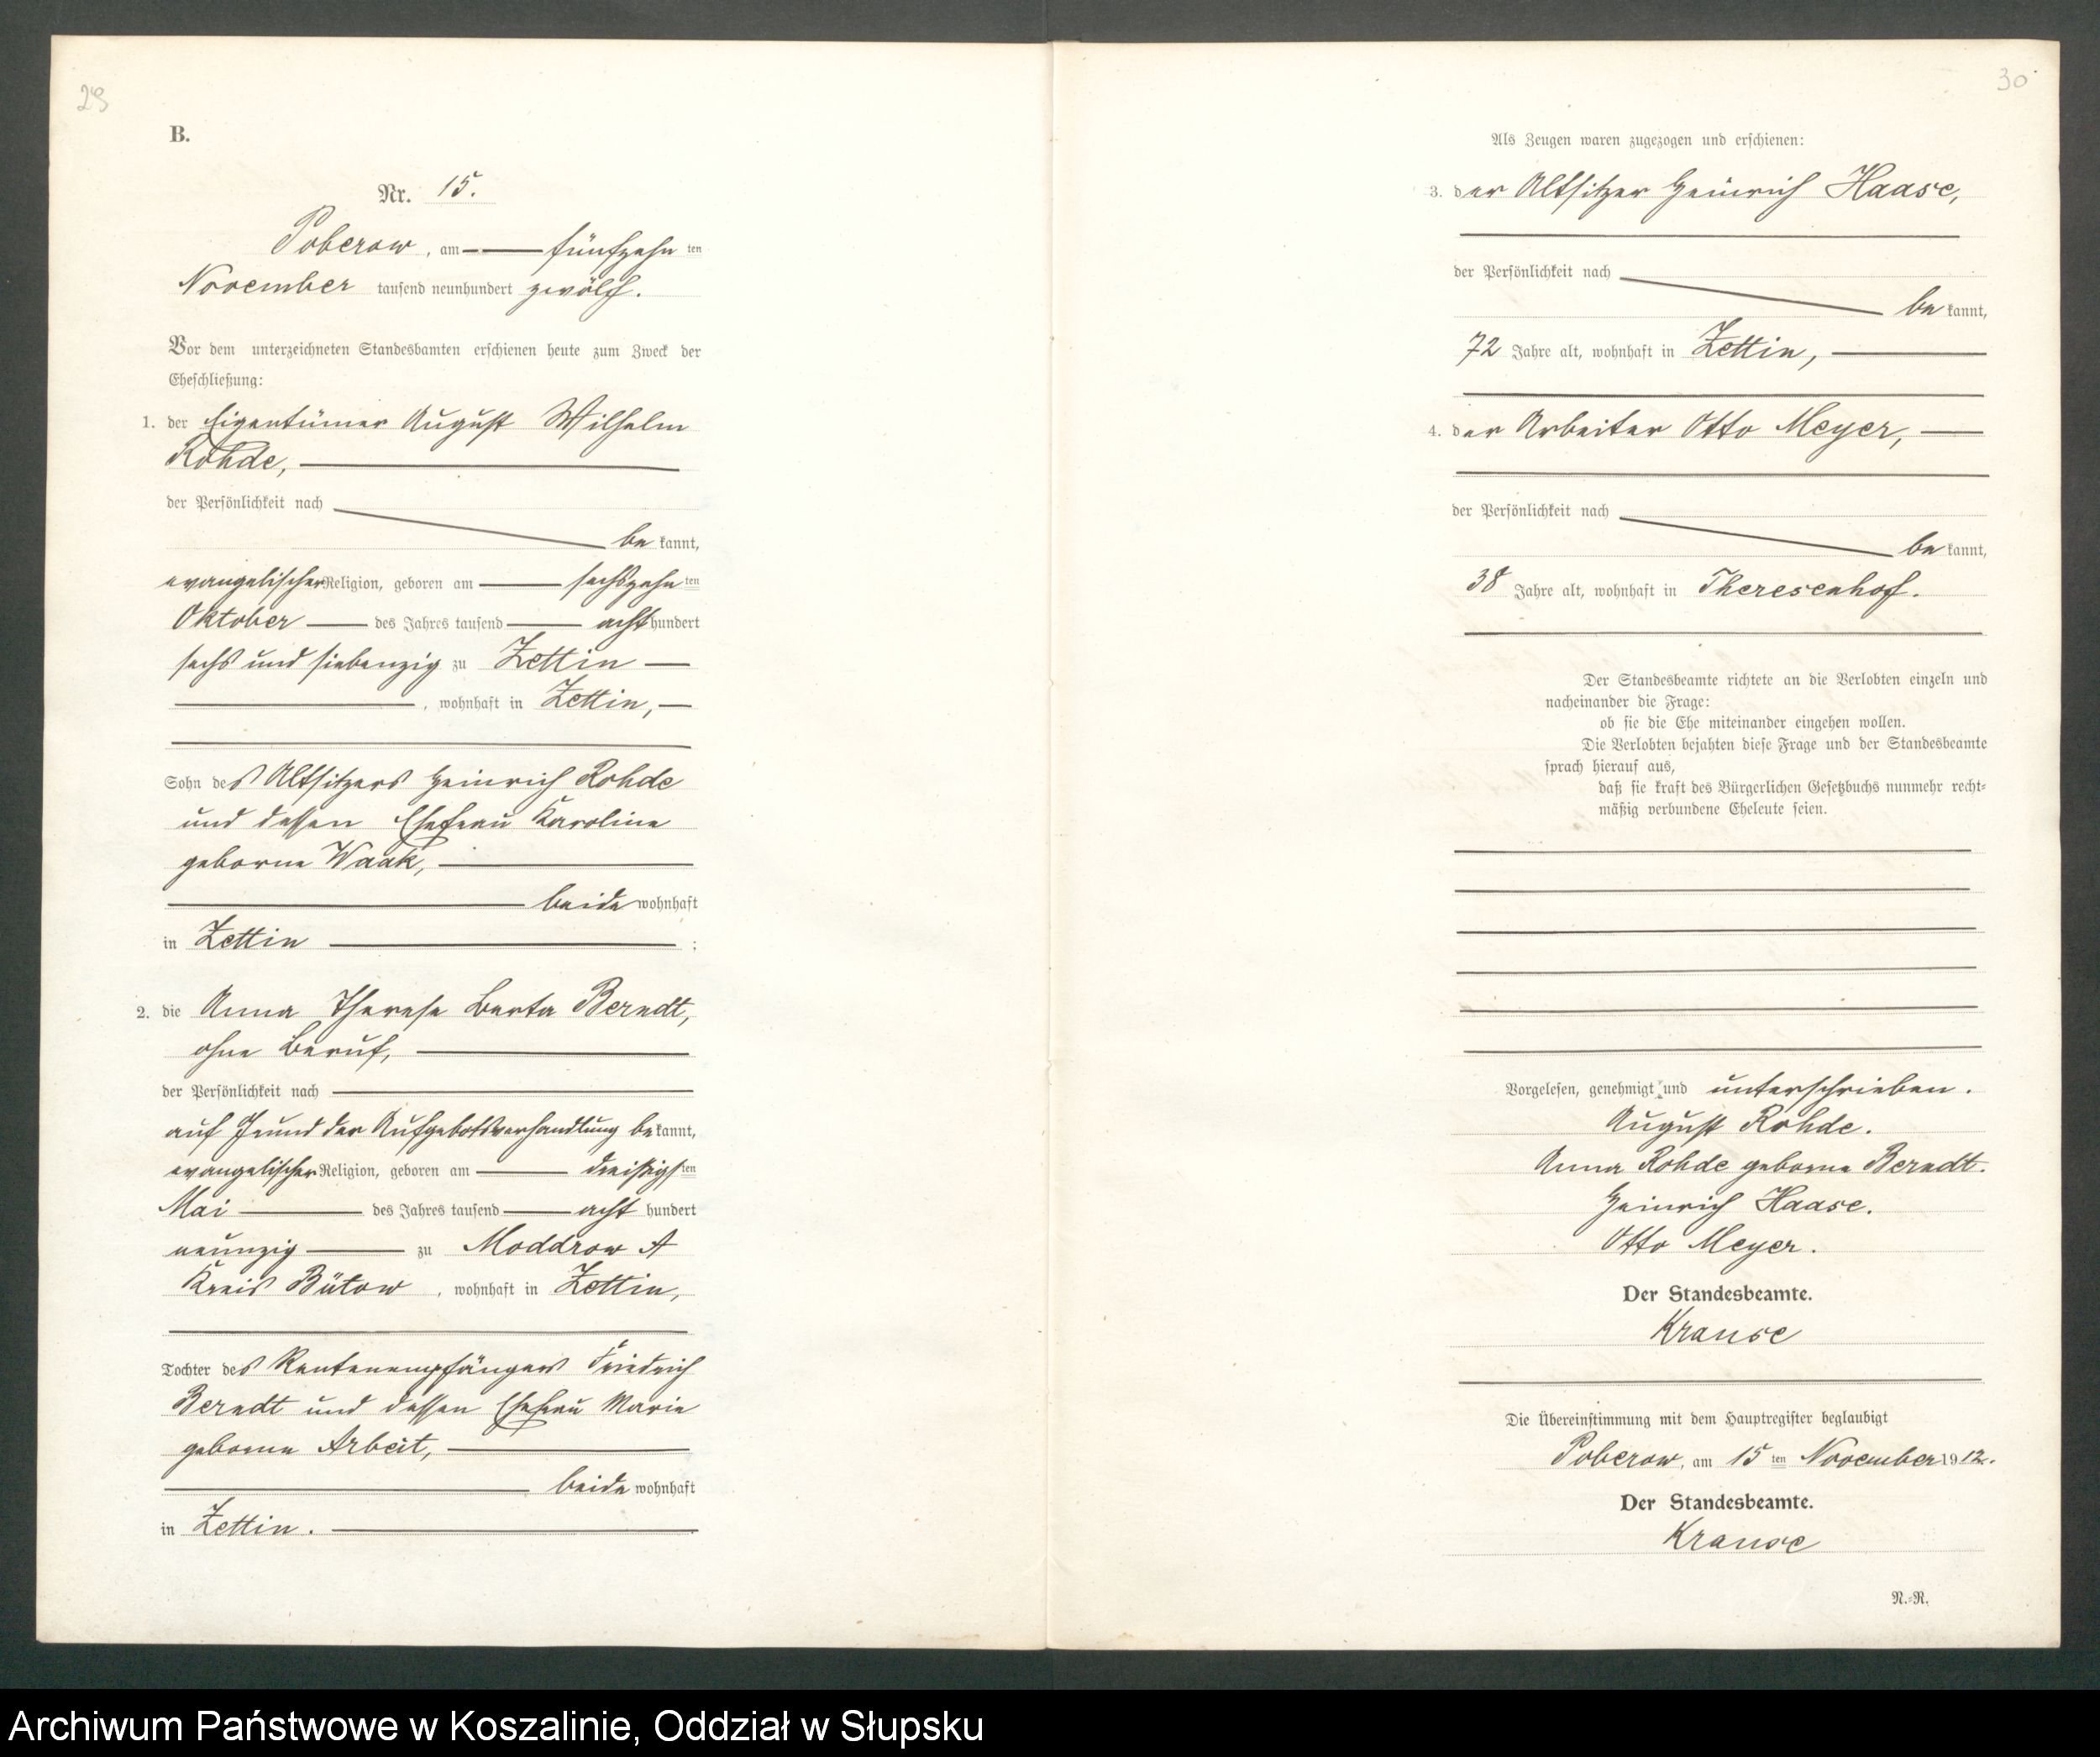 29
B.
Nr. 15.
Poberow, am fünfzehn ten
November tausend neunhundert zwölf.
Vor dem unterzeichneten Standesbamten erschienen heute zum Zweck der
Eheschließung:
1. der Eigentümer August Wilhelm
Rohde,
der Persönlichkeit nach
be kannt,
evangelischer Religion, geboren am sechszehn ten
Oktober des Jahres tausend acht hundert
sechs und siebenzig zu Zettin
, wohnhaft in Zettin,
Sohn des Altsitzers Heinrich Rohde
und dessen Ehefrau Karoline
geborne Waak,
beide wohnhaft
in Zettin ;
2. die Anna Therese Berta Berndt,
ohne Beruf,
der Persönlichkeit nach
auf Grund der Aufgebotsverhandlung be kannt,
evangelischer Religion, geboren am dreißigs ten
Mai des Jahres tausend acht hundert
neunzig zu Moddrow A
Kreis Bütow, wohnhaft in Zettin,
Tochter des Rentenempfängers Friedrich
Berndt und dessen Ehefrau Marie
geborne Arbeit,
beide wohnhaft
in Zettin.
30
Als Zeugen waren zugezogen und erschienen:
3. der Altsitzer Heinrich Haase,
der Persönlichkeit nach
be kannt,
72 Jahre alt, wohnhaft in Zettin,
4. der Arbeiter Otto Meyer,
der Persönlichkeit nach
be kannt,
38 Jahre alt, wohnhaft in Theresenhof.
Der Standesbeamte richtete an die Verlobten einzeln und
nacheinander die Frage:
ob sie die Ehe miteinander eingehen wollen.
Die Verlobten bejahten diese Frage und der Standesbeamte
sprach hierauf aus,
daß sie kraft des Bürgerlichen Gesetzbuchs nunmehr recht-
mäßig verbundene Eheleute seien.
Vorgelesen, genehmigt und unterschrieben.
August Rohde.
Anna Rohde geborne Berndt.
Heinrich Haase.
Otto Meyer.
Der Standesbeamte.
Krause
Die Übereinstimmung mit dem Hauptregister beglaubigt
Poberow, am 15 ten November 1912.
Der Standesbeamte.
Krause
N.-R.
Archiwum Państwowe w Koszalinie, Oddział w Słupsku